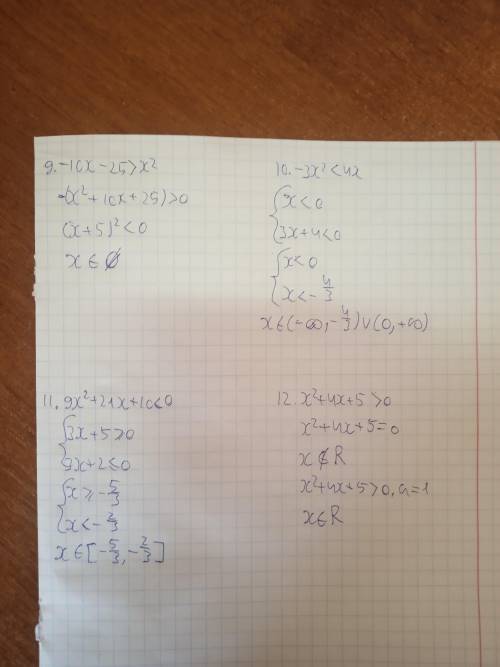 9. -10x-25>x²
-(x²+10x+25)>0
(x+5)²<0
x∈∅
10. -3x²<4x
{x<0
{3x+4<0
{x<0
{x<-4/3
x∈(-∞,-4/3)∪(0,+∞)
11. 9x²+21x+10≤0
{3x+5≥0
{3x+2≤0
{x≥-5/3
{x<-2/3
x∈[-5/3,-2/3]
12. x²+4x+5>0
x²+4x+5=0
x∉R
x²+4x+5>0, a=1
x∈R